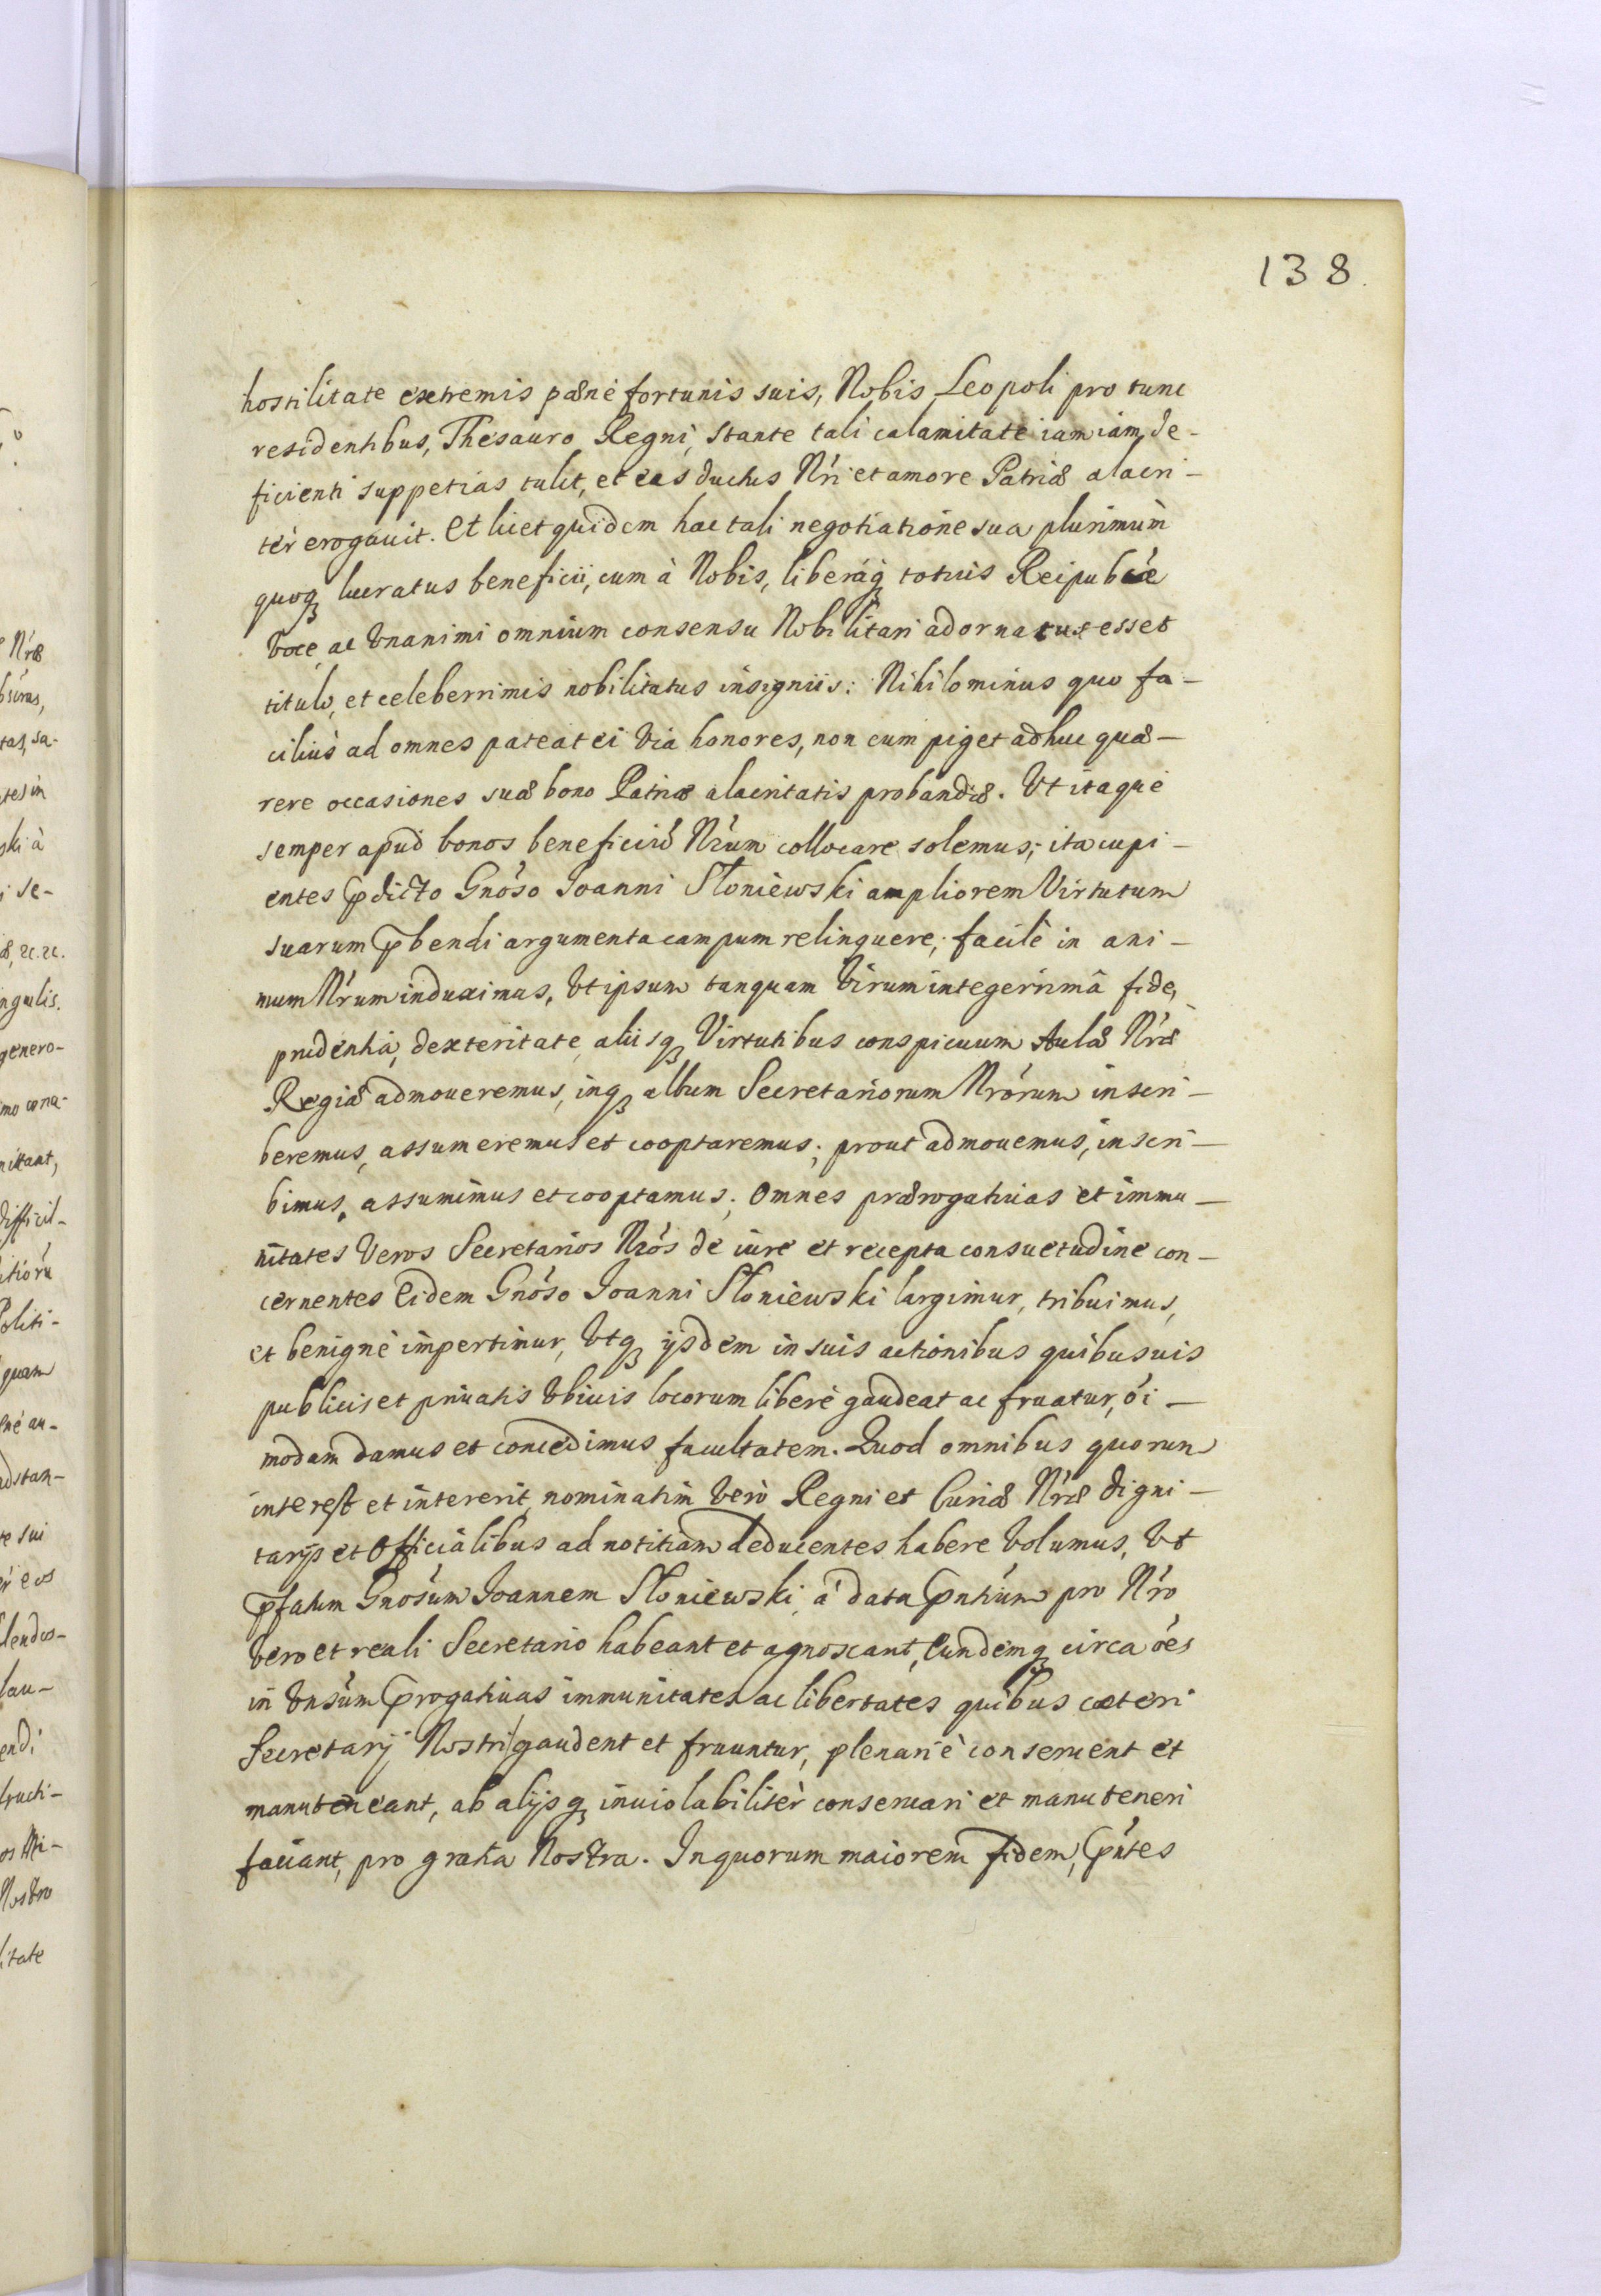 138
hostilitate extremis pænè fortunis suis, Nobis Leopoli pro tunc
residentibus, Thesauro Regni, stante tali calamitate iam iam de-
ficienti suppetias tulit, et eas ductus Nri et amore Patriæ alacri-
tèr erogauit. Et licet quidem hac tali negotiatione sua plurimum
quoq lucratus beneficii, cum à Nobis, liberáq totius Reipubcæ
Voce, ac Vnanimi omnium consensu Nobilitari adornatus esset
titulo, et celeberrimis nobilitatus insigniis: Nihilominus quo fa-
ciliùs ad omnes pateat ei Via honores, non eum piget adhuc quæ-
rere occasiones suæ bono Patriæ alacritatis probandæ. Vt itaque
semper apud bonos beneficiū Nrum collocare solemus; ita cupi-
entes p̄dicto Gnoso Joanni Słoniewski ampliorem Virtutum
suarum p̄bendi argumenta campum relinquere; facilè in ani-
mum Nrum induximus, Vt ipsum tanquam Virum integerrimâ fide,
prudentiâ, dexteritate, aliisq Virtutibus conspicuum Aulæ Nræ
Regiæ admoueremus, inq album Secretariorum Nrorum inscri-
beremus, assumeremus et cooptaremus; prout admouemus, inscri-
bimus, assumimus et cooptamus; Omnes prærogatiuas et immu-
nitates Veros Secretarios Nros de iure et recepta consuetudine con-
cernentes Eidem Gnoso Joanni Słoniewski largimur, tribuimus,
et benignè impertimur, Vtq ijsdem in suis actionibus quibusuis
publicis et priuatis Vbiuis locorum liberè gaudeat ac fruatur, oi-
modam damus et concedimus facultatem. Quod omnibus quorum
interest et intererit, nominatim Verò Regni et Curiæ Nræ digni-
tarijs et Officialibus ad notitiam deducentes habere Volumus, Vt
p̄fatum Gnosum Joannem Słoniewski, à data p̄ntium pro Nro
Vero et reali Secretario habeant et agnoscant, Eundemq circa oes
in Vnsum p̄rogatiuas immunitates ac libertates quibus cæteri
Secretarij Nostri gaudent et fruuntur, plenariè conseruent et
manuteneant, ab alijsq inuiolabilitèr conseruari et manuteneri
faciant, pro gratia Nostra. In quorum maiorem fidem, p̄ntes